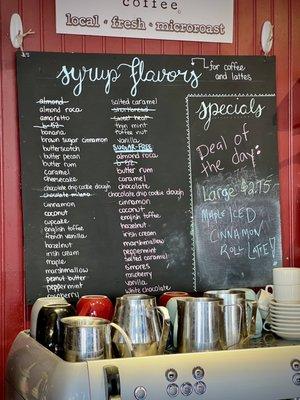 coffee
local · fresh · microroast
syrup flavors
for coffee
and lattes
almond
almond roca
amaretto
b-52
banana
brown sugar cinnamon
butterscotch
butter pecan
butter rum
caramel
cheesecake
chocolate chip cookie dough
chocolate milano
cinnamon
coconut
cupcake
english toffee
french vanilla
hazelnut
irish cream
maple
marshmallow
peanut butter
peppermint
raspberry
salted caramel
shortbread
sweet heat
thin mint
toffee nut
vanilla
SUGAR-FREE
almond roca
b-52
butter rum
caramel
chocolate
chocolate chip cookie dough
cinnamon
coconut
english toffee
hazelnut
irish cream
marshmallow
peppermint
salted caramel
s'mores
raspberry
vanilla
white chocolate
Specials
Deal of
the day:
Large $2.75
MAPLE ICED
CINNAMON
ROLL LATTE!